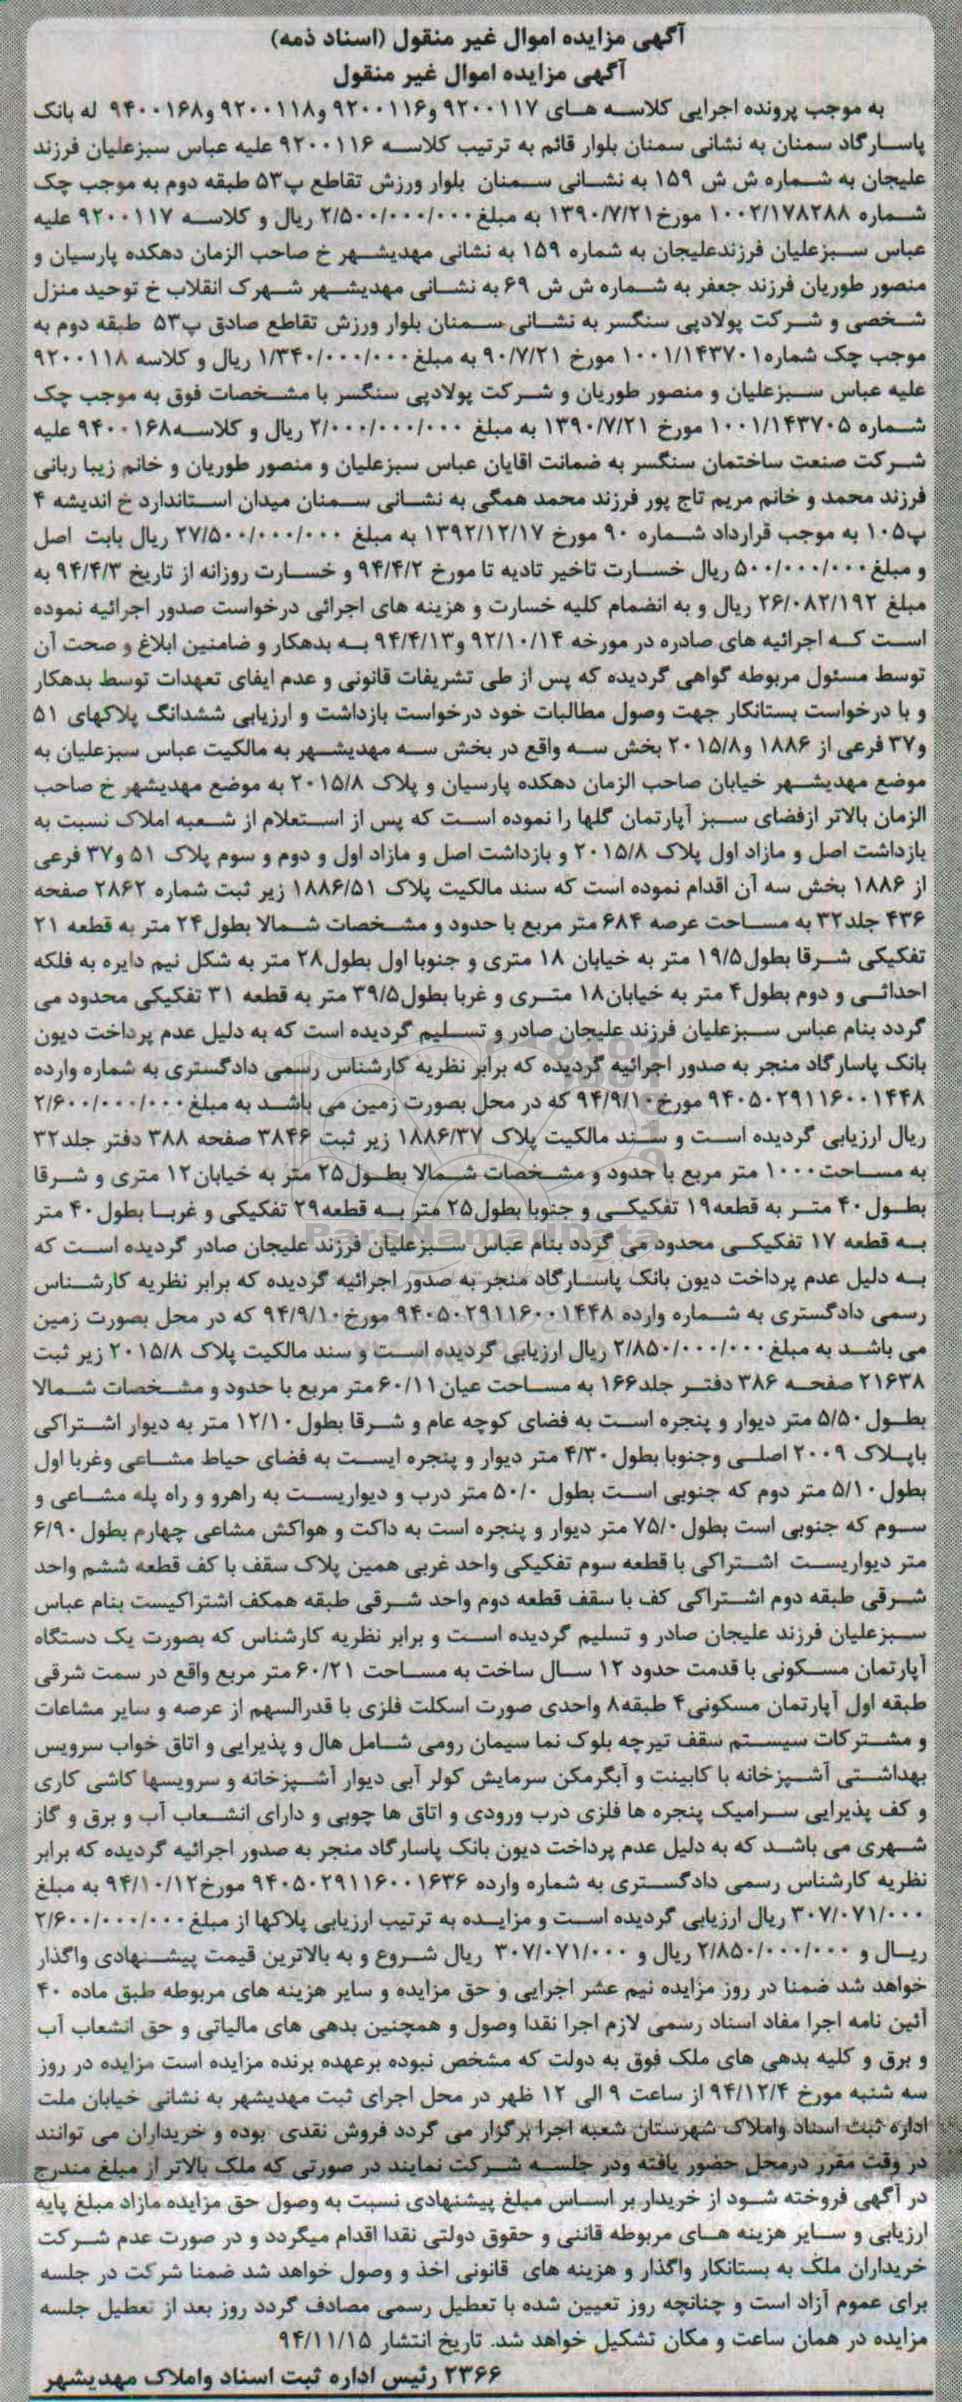 آگهی مزایده اموال غیر منقول (اسناد ذمه)
آگهی مزایده اموال غیر منقول
به موجب پرونده اجرایی کلاسه های ۹۲۰۰۱۱۷ و۹۲۰۰۱۱۶ و۹۲۰۰۱۱۸ و۹۴۰۰۱۶۸ له بانک
پاسارگاد سمنان به نشانی سمنان بلوار قائم به ترتیب کلاسه ۹۲۰۰۱۱۶ علیه عباس سبزعلیان فرزند
علیجان به شماره ش ش ۱۵۹ به نشانی سمنان بلوار ورزش تقاطع پ۵۳ طبقه دوم به موجب چک
شماره ۱۰۰۲/۱۷۸۲۸۸ مورخ۱۳۹۰/۷/۲۱ به مبلغ۲/۵۰۰/۰۰۰/۰۰۰ ریال و کلاسه ۹۲۰۰۱۱۷ علیه
عباس سبزعلیان فرزندعلیجان به شماره ۱۵۹ به نشانی مهدیشهر خ صاحب الزمان دهکده پارسیان و
منصور طوریان فرزند جعفر به شماره ش ش ۶۹ به نشانی مهدیشهر شهرک انقلاب خ توحید منزل
شخصی و شرکت پولادپی سنگسر به نشانی سمنان بلوار ورزش تقاطع صادق پ۵۳ طبقه دوم به
موجب چک شماره۱۰۰۱/۱۴۳۷۰۱ مورخ ۹۰/۷/۲۱ به مبلغ۱/۳۴۰/۰۰۰/۰۰۰ ریال و کلاسه ۹۲۰۰۱۱۸
علیه عباس سبزعلیان و منصور طوریان و شرکت پولادپی سنگسر با مشخصات فوق به موجب چک
شماره ۱۰۰۱/۱۴۳۷۰۵ مورخ ۱۳۹۰/۷/۲۱ به مبلغ ۲/۰۰۰/۰۰۰/۰۰۰ ریال و کلاسه۹۴۰۰۱۶۸ علیه
شرکت صنعت ساختمان سنگسر به ضمانت اقایان عباس سبزعلیان و منصور طوریان و خانم زیبا ربانی
فرزند محمد و خانم مریم تاج پور فرزند محمد همگی به نشانی سمنان میدان استاندارد خ اندیشه ۴
پ۱۰۵ به موجب قرارداد شماره ۹۰ مورخ ۱۳۹۲/۱۲/۱۷ به مبلغ ۲۷/۵۰۰/۰۰۰/۰۰۰ ریال بابت اصل
و مبلغ۵۰۰/۰۰۰/۰۰۰ ریال خسارت تاخیر تادیه تا مورخ ۹۴/۴/۲ و خسارت روزانه از تاریخ ۹۴/۴/۳ به
مبلغ ۲۶/۰۸۲/۱۹۲ ریال و به انضمام کلیه خسارت و هزینه های اجرائی درخواست صدور اجرائیه نموده
است که اجرائیه های صادره در مورخه ۹۲/۱۰/۱۴ و۹۴/۴/۱۳ به بدهکار و ضامنین ابلاغ و صحت آن
توسط مسئول مربوطه گواهی گردیده که پس از طی تشریفات قانونی و عدم ایفای تعهدات توسط بدهکار
و با درخواست بستانکار جهت وصول مطالبات خود درخواست بازداشت و ارزیابی ششدانگ پلاکهای ۵۱
و۳۷ فرعی از ۱۸۸۶ و۲۰۱۵/۸ بخش سه واقع در بخش سه مهدیشهر به مالکیت عباس سبزعلیان به
موضع مهدیشهر خیابان صاحب الزمان دهکده پارسیان و پلاک ۲۰۱۵/۸ به موضع مهدیشهر خ صاحب
الزمان بالاتر ازفضای سبز آپارتمان گلها را نموده است که پس از استعلام از شعبه املاک نسبت به
بازداشت اصل و مازاد اول پلاک ۲۰۱۵/۸ و بازداشت اصل و مازاد اول و دوم و سوم پلاک ۵۱ و۳۷ فرعی
از ۱۸۸۶ بخش سه آن اقدام نموده است که سند مالکیت پلاک ۱۸۸۶/۵۱ زیر ثبت شماره ۲۸۶۲ صفحه
۴۳۶ جلد۳۲ به مساحت عرصه ۶۸۴ متر مربع با حدود و مشخصات شمالا بطول۲۴ متر به قطعه ۲۱
تفکیکی شرقا بطول۱۹/۵ متر به خیابان ۱۸ متری و جنوبا اول بطول۲۸ متر به شکل نیم دایره به فلکه
احداثی و دوم بطول۴ متر به خیابان۱۸ متری و غربا بطول۳۹/۵ متر به قطعه ۳۱ تفکیکی محدود می
گردد بنام عباس سبزعلیان فرزند علیجان صادر و تسلیم گردیده است که به دلیل عدم پرداخت دیون
بانک پاسارگاد منجر به صدور اجرائیه گردیده که برابر نظریه کارشناس رسمی دادگستری به شماره وارده
۹۴۰۵۰۲۹۱۱۶۰۰۱۴۴۸ مورخ۹۴/۹/۱۰ که در محل بصورت زمین می باشد به مبلغ۲/۶۰۰/۰۰۰/۰۰۰
ریال ارزیابی گردیده است و سند مالکیت پلاک ۱۸۸۶/۳۷ زیر ثبت ۳۸۴۶ صفحه ۳۸۸ دفتر جلد۳۲
به مساحت۱۰۰۰ متر مربع با حدود و مشخصات شمالا بطول۲۵ متر به خیابان۱۲ متری و شرقا
بطول۴۰ متر به قطعه۱۹ تفکیکی و جنوبا بطول۲۵ متر به قطعه۲۹ تفکیکی و غربا بطول۴۰ متر
به قطعه ۱۷ تفکیکی محدود می گردد بنام عباس سبزعلیان فرزند علیجان صادر گردیده است که
به دلیل عدم پرداخت دیون بانک پاسارگاد منجر به صدور اجرائیه گردیده که برابر نظریه کارشناس
رسمی دادگستری به شماره وارده ۹۴۰۵۰۲۹۱۱۶۰۰۱۴۴۸ مورخ۹۴/۹/۱۰ که در محل بصورت زمین
می باشد به مبلغ۲/۸۵۰/۰۰۰/۰۰۰ ریال ارزیابی گردیده است و سند مالکیت پلاک ۲۰۱۵/۸ زیر ثبت
۲۱۶۳۸ صفحه ۳۸۶ دفتر جلد۱۶۶ به مساحت عیان۶۰/۱۱ متر مربع با حدود و مشخصات شمالا
بطول۵/۵۰ متر دیوار و پنجره است به فضای کوچه عام و شرقا بطول۱۲/۱۰ متر به دیوار اشتراکی
باپلاک ۲۰۰۹ اصلی وجنوبا بطول۴/۳۰ متر دیوار و پنجره ایست به فضای حیاط مشاعی وغربا اول
بطول۵/۱۰ متر دوم که جنوبی است بطول ۵۰/۰ متر درب و دیواریست به راهرو و راه پله مشاعی و
سوم که جنوبی است بطول۷۵/۰ متر دیوار و پنجره است به داکت و هواکش مشاعی چهارم بطول۶/۹۰
متر دیواریست اشتراکی با قطعه سوم تفکیکی واحد غربی همین پلاک سقف با کف قطعه ششم واحد
شرقی طبقه دوم اشتراکی کف با سقف قطعه دوم واحد شرقی طبقه همکف اشتراکیست بنام عباس
سبزعلیان فرزند علیجان صادر و تسلیم گردیده است و برابر نظریه کارشناس که بصورت یک دستگاه
آپارتمان مسکونی با قدمت حدود ۱۲ سال ساخت به مساحت ۶۰/۲۱ متر مربع واقع در سمت شرقی
طبقه اول آپارتمان مسکونی۴ طبقه۸ واحدی صورت اسکلت فلزی با قدرالسهم از عرصه و سایر مشاعات
و مشترکات سیستم سقف تیرچه بلوک نما سیمان رومی شامل هال و پذیرایی و اتاق خواب سرویس
بهداشتی آشپزخانه با کابینت و آبگرمکن سرمایش کولر آبی دیوار آشپزخانه و سرویسها کاشی کاری
و کف پذیرایی سرامیک پنجره ها فلزی درب ورودی و اتاق ها چوبی و دارای انشعاب آب و برق و گاز
شهری می باشد که به دلیل عدم پرداخت دیون بانک پاسارگاد منجر به صدور اجرائیه گردیده که برابر
نظریه کارشناس رسمی دادگستری به شماره وارده ۹۴۰۵۰۲۹۱۱۶۰۰۱۶۳۶ مورخ۹۴/۱۰/۱۲ به مبلغ
۳۰۷/۰۷۱/۰۰۰ ریال ارزیابی گردیده است و مزایده به ترتیب ارزیابی پلاکها از مبلغ۲/۶۰۰/۰۰۰/۰۰۰
ریال و ۲/۸۵۰/۰۰۰/۰۰۰ ریال و ۳۰۷/۰۷۱/۰۰۰ ریال شروع و به بالاترین قیمت پیشنهادی واگذار
خواهد شد ضمنا در روز مزایده نیم عشر اجرایی و حق مزایده و سایر هزینه های مربوطه طبق ماده ۴۰
آئین نامه اجرا مفاد اسناد رسمی لازم اجرا نقدا وصول و همچنین بدهی های مالیاتی و حق انشعاب آب
و برق و کلیه بدهی های ملک فوق به دولت که مشخص نبوده برعهده برنده مزایده است مزایده در روز
سه شنبه مورخ ۹۴/۱۲/۴ از ساعت ۹ الی ۱۲ ظهر در محل اجرای ثبت مهدیشهر به نشانی خیابان ملت
اداره ثبت اسناد واملاک شهرستان شعبه اجرا برگزار می گردد فروش نقدی بوده و خریداران می توانند
در وقت مقرر درمحل حضور یافته ودر جلسه شرکت نمایند در صورتی که ملک بالاتر از مبلغ مندرج
در آگهی فروخته شود از خریدار بر اساس مبلغ پیشنهادی نسبت به وصول حق مزایده مازاد مبلغ پایه
ارزیابی و سایر هزینه های مربوطه قاننی و حقوق دولتی نقدا اقدام میگردد و در صورت عدم شرکت
خریداران ملک به بستانکار واگذار و هزینه های قانونی اخذ و وصول خواهد شد ضمنا شرکت در جلسه
برای عموم آزاد است و چنانچه روز تعیین شده با تعطیل رسمی مصادف گردد روز بعد از تعطیل جلسه
مزایده در همان ساعت و مکان تشکیل خواهد شد. تاریخ انتشار ۹۴/۱۱/۱۵
۲۳۶۶ رئیس اداره ثبت اسناد واملاک مهدیشهر
ParsNamadData